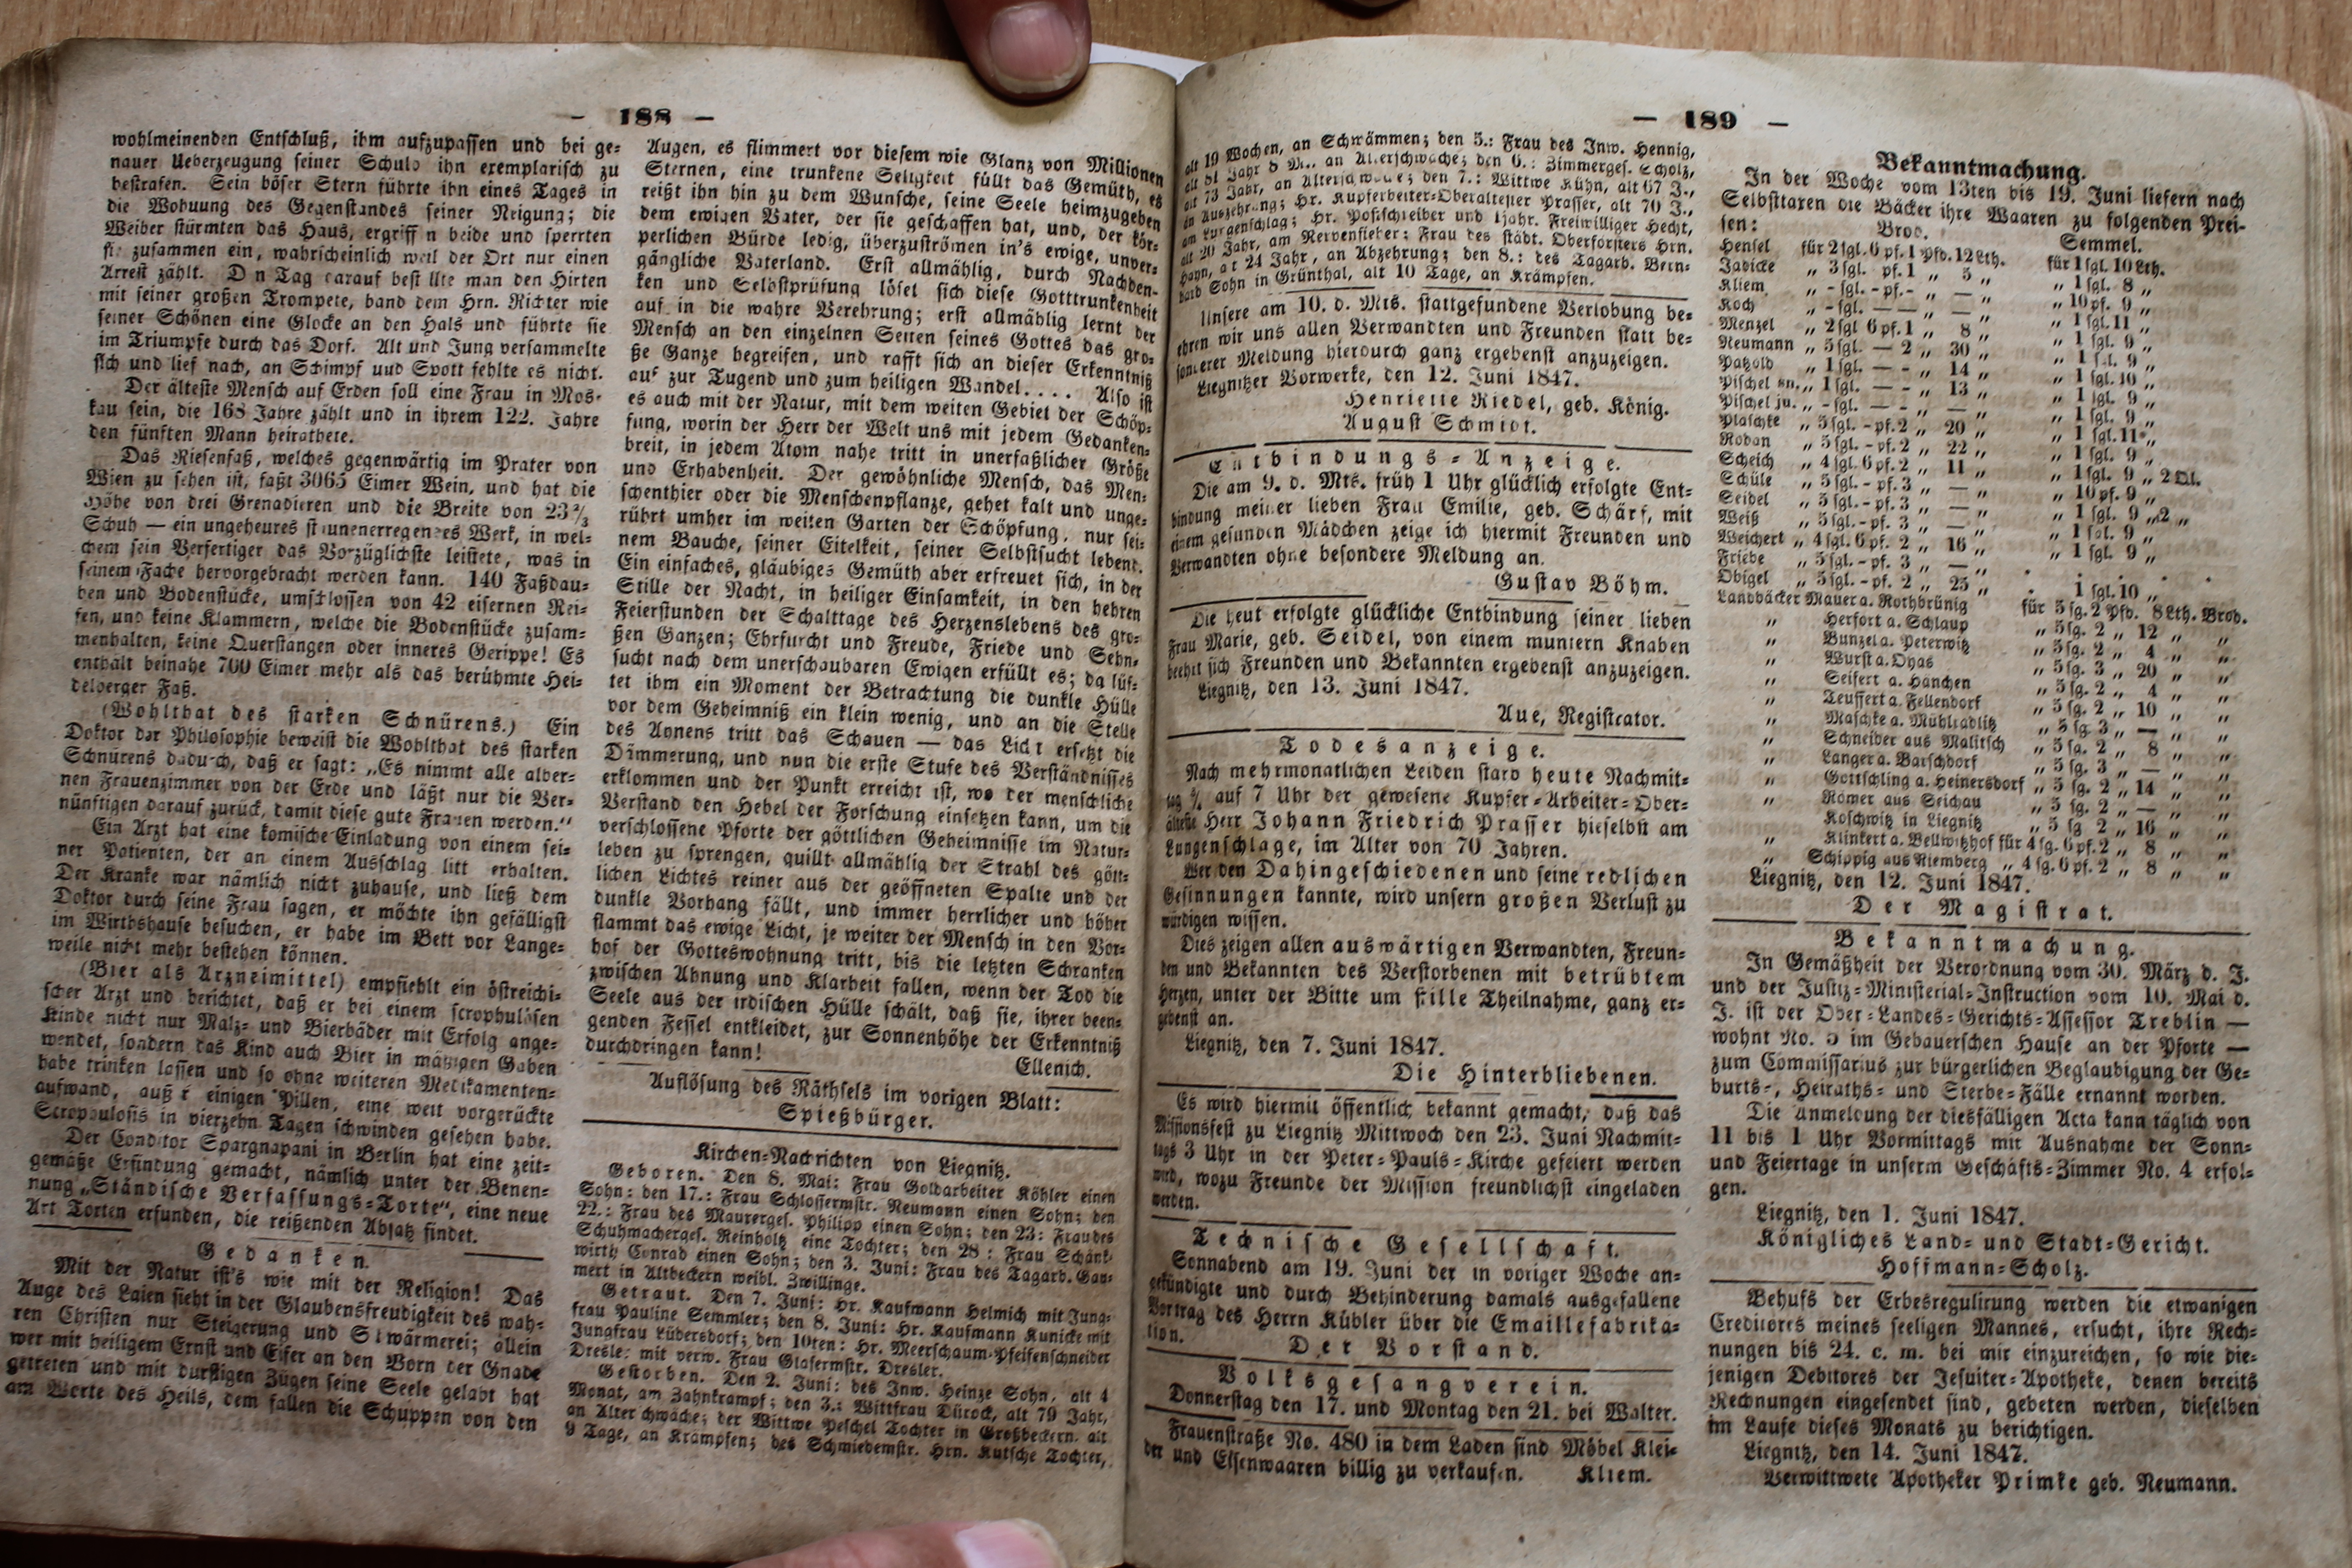 — 188 —
wohlmeinenden Entschluß, ihm aufzupassen und bei ge-
nauer Ueberzeugung seiner Schuld ihn exemplarisch zu
bestrafen. Sein böser Stern führte ihn eines Tages in
die Wohuung des Gegenstandes seiner Neigung; die
Weiber stürmten das Haus, ergriff n beide und sperrten
sie zusammen ein, wahrscheinlich weil der Ort nur einen
Arrest zählt. D n Tag darauf best llte man den Hirten
mit seiner großen Trompete, band dem Hrn. Richter wie
seiner Schönen eine Glocke an den Hals und führte sie
im Triumpfe durch das Dorf. Alt und Jung versammelte
sich und lief nach, an Schimpf und Spott fehlte es nicht.
Der älteste Mensch auf Erden soll eine Frau in Mos-
kau sein, die 168 Jahre zählt und in ihrem 122. Jahre
den fünften Mann heirathete.
Das Riesenfaß, welches gegenwärtig im Prater von
Wien zu sehen ist, faßt 3065 Eimer Wein, und hat die
Höhe von drei Grenadieren und die Breite von 23 2/3
Schuh — ein ungeheures staunenerregendes Werk, in wel-
chem sein Verfertiger das Vorzüglichste leistete, was in
seinem Fache hervorgebracht werden kann. 140 Faßdau-
ben und Bodenstücke, umschlossen von 42 eisernen Rei-
fen, und keine Klammern, welche die Bodenstücke zusam-
menhalten, keine Querstangen oder inneres Gerippe! Es
enthält beinahe 700 Eimer mehr als das berühmte Hei-
delberger Faß.
(Wohlthat des starken Schnürens.) Ein
Doktor der Philosophie beweist die Wohlthat des starken
Schnürens dadurch, daß er sagt: „Es nimmt alle alber-
nen Frauenzimmer von der Erde und läßt nur die Ver-
nünftigen darauf zurück, damit diese gute Frauen werden.“
Ein Arzt hat eine komische Einladung von einem sei-
ner Patienten, der an einem Ausschlag litt erhalten.
Der Kranke war nämlich nicht zuhause, und ließ dem
Doktor durch seine Frau sagen, er möchte ihn gefälligst
im Wirthshause besuchen, er habe im Bett vor Lange-
weile nicht mehr bestehen können.
(Bier als Arzneimittel) empfiehlt ein östreichi-
scher Arzt und berichtet, daß er bei einem scrophulösen
Kinde nicht nur Malz- und Bierbäder mit Erfolg ange-
wendet, sondern das Kind auch Bier in mäßigen Gaben
habe trinken lassen und so ohne weiteren Medikamenten-
aufwand, auß r einigen Pillen, eine weit vorgerückte
Scrophulosis in vierzehn Tagen schwinden gesehen habe.
Der Conditor Spargnapani in Berlin hat eine zeit-
gemäße Erfindung gemacht, nämlich unter der Benen-
nung „Ständische Verfassungs-Torte“, eine neue
Art Torten erfunden, die reißenden Absatz findet.
Gedanken.
Mit der Natur ist's wie mit der Religion! Das
Auge des Laien sieht in der Glaubensfreudigkeit des wah-
ren Christen nur Steigerung und Schwärmerei; allein
wer mit heiligem Ernst und Eifer an den Born der Gnade
getreten und mit durstigen Zügen seine Seele gelabt hat
am Worte des Heils, dem fallen die Schuppen von den
Augen, es flimmert vor diesem wie Glanz von Millionen
Sternen, eine trunkene Seligkeit füllt das Gemüth, es
reißt ihn hin zu dem Wunsche, seine Seele heimzugeben
dem ewigen Vater, der sie geschaffen hat, und, der kör-
perlichen Bürde ledig, überzuströmen in's ewige, unver-
gängliche Vaterland. Erst allmählig, durch Nachden-
ken und Selbstprüfung löset sich diese Gotttrunkenheit
auf in die wahre Verehrung; erst allmählig lernt der
Mensch an den einzelnen Seiten seines Gottes das gro-
ße Ganze begreifen, und rafft sich an dieser Erkenntniß
auf zur Tugend und zum heiligen Wandel.... Also ist
es auch mit der Natur, mit dem weiten Gebiet der Schöp-
fung, worin der Herr der Welt uns mit jedem Gedanken-
breit, in jedem Atom nahe tritt in unerfaßlicher Größe
und Erhabenheit. Der gewöhnliche Mensch, das Men-
schenthier oder die Menschenpflanze, gehet kalt und unge-
rührt umher im weiten Garten der Schöpfung, nur sei-
nem Bauche, seiner Eitelkeit, seiner Selbstsucht lebend.
Ein einfaches, gläubiges Gemüth aber erfreuet sich, in der
Stille der Nacht, in heiliger Einsamkeit, in den hehren
Feierstunden der Schalttage des Herzenslebens des gro-
ßen Ganzen; Ehrfurcht und Freude, Friede und Sehn-
sucht nach dem unerschaubaren Ewigen erfüllt es; da lüf-
tet ihm ein Moment der Betrachtung die dunkle Hülle
vor dem Geheimniß ein klein wenig, und an die Stelle
des Ahnens tritt das Schauen — das Licht ersetzt die
Dämmerung, und nun die erste Stufe des Verständnisses
erklommen und der Punkt erreicht ist, wo der menschliche
Verstand den Hebel der Forschung einsetzen kann, um die
verschlossene Pforte der göttlichen Geheimnisse im Natur-
leben zu sprengen, quillt allmählig der Strahl des gött-
lichen Lichtes reiner aus der geöffneten Spalte und der
dunkle Vorhang fällt, und immer herrlicher und höher
flammt das ewige Licht, je weiter der Mensch in den Vor-
hof der Gotteswohnung tritt, bis die letzten Schranken
zwischen Ahnung und Klarheit fallen, wenn der Tod die
Seele aus der irdischen Hülle schält, daß sie, ihrer been-
genden Fessel entkleidet, zur Sonnenhöhe der Erkenntniß
durchdringen kann!
Ellenich.
Auflösung des Räthsels im vorigen Blatt:
Spießbürger.
Kirchen-Nachrichten von Liegnitz.
Geboren. Den 8. Mai: Frau Goldarbeiter Köhler einen
Sohn; den 17.: Frau Schlossermstr. Neumann einen Sohn; den
22.: Frau des Maurerges. Philipp einen Sohn; den 23: Frau des
Schuhmacherges. Reinholtz eine Tochter; den 28: Frau Schänk-
wirth Conrad einen Sohn; den 3. Juni: Frau des Tagarb. Gau-
mert in Altbeckern weibl. Zwillinge.
Getraut. Den 7. Juni: Hr. Kaufmann Helmich mit Jung-
frau Pauline Semmler; den 8. Juni: Hr. Kaufmann Kunicke mit
Jungfrau Lübersdorf; den 10ten: Hr. Meerschaum-Pfeifenschneider
Dresler mit verw. Frau Glasermstr. Dresler.
Gestorben. Den 2. Juni: des Inw. Heinze Sohn, alt 4
Monat, am Zahnkrampf; den 3.: Wittfrau Dürock, alt 79 Jahr,
an Alter chwäche; der Wittwe Peschel Tochter in Großbeckern, alt
9 Tage, an Krämpfen; des Schmiedemstr. Hrn. Kutsche Tochter,
— 189 —
alt 19 Wochen, an Schwämmen; den 5.: Frau des Inw. Hennig,
alt 81 Jahr 8 M., an Altersschwäche; den 6.: Zimmerges. Scholz,
alt 73 Jahr, an Altersschwäche; den 7.: Wittwe Kühn, alt 67 J.,
an Auszehrung; Hr. Kupferbeiter-Oberältester Prasser, alt 70 J.,
am Lungenschlag; Hr. Postschreiber und 1jähr. Freiwilliger Hecht,
alt 20 Jahr, am Nervenfieber; Frau des städt. Oberförsters Hrn.
Hayn, alt 24 Jahr, an Abzehrung; den 8.: des Tagarb. Bern-
hard Sohn in Grünthal, alt 10 Tage, an Krämpfen.
Unsere am 10. d. Mts. stattgefundene Verlobung be-
ehren wir uns allen Verwandten und Freunden statt be-
sonderer Meldung hierdurch ganz ergebenst anzuzeigen.
Liegnitzer Vorwerke, den 12. Juni 1847.
Henriette Riedel, geb. König.
August Schmidt.
Entbindungs-Anzeige.
Die am 9. d. Mts. früh 1 Uhr glücklich erfolgte Ent-
bindung meiner lieben Frau Emilie, geb. Schärf, mit
einem gesunden Mädchen zeige ich hiermit Freunden und
Verwandten ohne besondere Meldung an.
Gustav Böhm.
Die heut erfolgte glückliche Entbindung seiner lieben
Frau Marie, geb. Seidel, von einem muntern Knaben
beehrt sich Freunden und Bekannten ergebenst anzuzeigen.
Liegnitz, den 13. Juni 1847.
Aue, Registrator.
Todesanzeige.
Nach mehrmonatlichen Leiden starb heute Nachmit-
tag auf 7 Uhr der gewesene Kupfer-Arbeiter-Ober-
älteste Herr Johann Friedrich Prasser hieselbst am
Lungenschlage, im Alter von 70 Jahren.
Wer den Dahingeschiedenen und seine redlichen
Gesinnungen kannte, wird unsern großen Verlust zu
würdigen wissen.
Dies zeigen allen auswärtigen Verwandten, Freun-
den und Bekannten des Verstorbenen mit betrübtem
Herzen, unter der Bitte um stille Theilnahme, ganz er-
gebenst an.
Liegnitz, den 7. Juni 1847.
Die Hinterbliebenen.
Es wird hiermit öffentlich bekannt gemacht, daß das
Missionsfest zu Liegnitz Mittwoch den 23. Juni Nachmit-
tags 3 Uhr in der Peter-Pauls-Kirche gefeiert werden
wird, wozu Freunde der Mission freundlichst eingeladen
werden.
Technische Gesellschaft.
Sonnabend am 19. Juni der in voriger Woche an-
gekündigte und durch Behinderung damals ausgefallene
Vortrag des Herrn Kübler über die Emaillefabrika-
tion.
Der Vorstand.
Volksgesangverein.
Donnerstag den 17. und Montag den 21. bei Walter.
Frauenstraße No. 480 in dem Laden sind Möbel Klei-
der und Eisenwaaren billig zu verkaufen. Kliem.
Bekanntmachung.
In der Woche vom 13ten bis 19. Juni liefern nach
Selbsttaxen die Bäcker ihre Waaren zu folgenden Prei-
sen: Brod. Semmel.
Hensel für 2 sgl. 6 pf. 1 Pfd. 12 Lth. für 1 sgl. 10 Lth.
Jädicke „ 3 sgl. pf. 1 „ 5 „ „ 1 sgl. 8 „
Kliem „ - sgl. - pf. - „ — „ „ 10 pf. 9 „
Koch „ - sgl. — — „ — „ „ 1 sgl. 11 „
Menzel „ 2 sgl 6 pf. 1 „ 8 „ „ 1 sgl. 9 „
Neumann „ 5 sgl. — 2 „ 30 „ „ 1 sgl. 9 „
Patzold „ 1 sgl. — - „ 14 „ „ 1 sgl. 10 „
Pischel sn. „ 1 sgl. — - „ 13 „ „ 1 sgl. 9 „
Pischel ju. „ - sgl. — - „ — „ „ 1 sgl. 9 „
Plaschke „ 5 sgl. - pf. 2 „ 20 „ „ 1 sgl. 11 „
Rodan „ 5 sgl. - pf. 2 „ 22 „ „ 1 sgl. 9 „
Scheich „ 4 sgl. 6 pf. 2 „ 11 „ „ 1 sgl. 9 „ 2 Ql.
Schüle „ 5 sgl. - pf. 3 „ — „ „ 10 pf. 9 „
Seidel „ 5 sgl. - pf. 3 „ — „ „ 1 sgl. 9 „ 2 „
Weiß „ 5 sgl. - pf. 3 „ — „ „ 1 sgl. 9 „
Weichert „ 4 sgl. 6 pf. 2 „ 16 „ „ 1 sgl. 9 „
Friebe „ 5 sgl. - pf. 3 „ — „
Obigel „ 5 sgl. - pf. 2 „ 25 „ 1 sgl. 10 „
Landbäcker Mauer a. Rothbrünig für 5 sg. 2 Pfd. 8 Lth. Brod.
„ Herfort a. Schlaup „ 5 sg. 2 „ 12 „ „
„ Bunzel a. Peterwitz „ 5 sg. 2 „ 4 „ „
„ Wurst a. Dyas „ 5 sg. 3 „ 20 „ „
„ Seifert a. Hänchen „ 5 sg. 2 „ 4 „ „
„ Teuffert a. Fellendorf „ 5 sg. 2 „ 10 „ „
„ Maschke a. Mühlradlitz „ 5 sg. 3 „ — „ „
„ Schneider aus Malitsch „ 5 sg. 2 „ 8 „ „
„ Langer a. Barschdorf „ 5 sg. 3 „ — „ „
„ Gottschling a. Heinersdorf „ 5 sg. 2 „ 14 „ „
„ Römer aus Seichau „ 5 sg. 2 „ — „ „
Koschwitz in Liegnitz „ 5 sg 2 „ 16 „ „
„ Klinkert a. Bellwitzhof für 4 sg. 6 pf. 2 „ 8 „ „
„ Schippig aus Niemberg „ 4 sg. 6 pf. 2 „ 8 „ „
Liegnitz, den 12. Juni 1847.
Der Magistrat.
Bekanntmachung.
In Gemäßheit der Verordnung vom 30. März d. J.
und der Justiz-Ministerial-Instruction vom 10. Mai d.
J. ist der Ober-Landes-Gerichts-Assessor Treblin —
wohnt No. 5 im Gebauerschen Hause an der Pforte —
zum Commissarius zur bürgerlichen Beglaubigung der Ge-
burts-, Heiraths- und Sterbe-Fälle ernannt worden.
Die Anmeldung der diesfälligen Acta kann täglich von
11 bis 1 Uhr Vormittags mit Ausnahme der Sonn-
und Feiertage in unserm Geschäfts-Zimmer No. 4 erfol-
gen.
Liegnitz, den 1. Juni 1847.
Königliches Land- und Stadt-Gericht.
Hoffmann-Scholz.
Behufs der Erbesregulirung werden die etwanigen
Creditores meines seeligen Mannes, ersucht, ihre Rech-
nungen bis 24. c. m. bei mir einzureichen, so wie die-
jenigen Debitores der Jesuiter-Apotheke, denen bereits
Rechnungen eingesendet sind, gebeten werden, dieselben
im Laufe dieses Monats zu berichtigen.
Liegnitz, den 14. Juni 1847.
Verwittwete Apotheker Primke geb. Neumann.